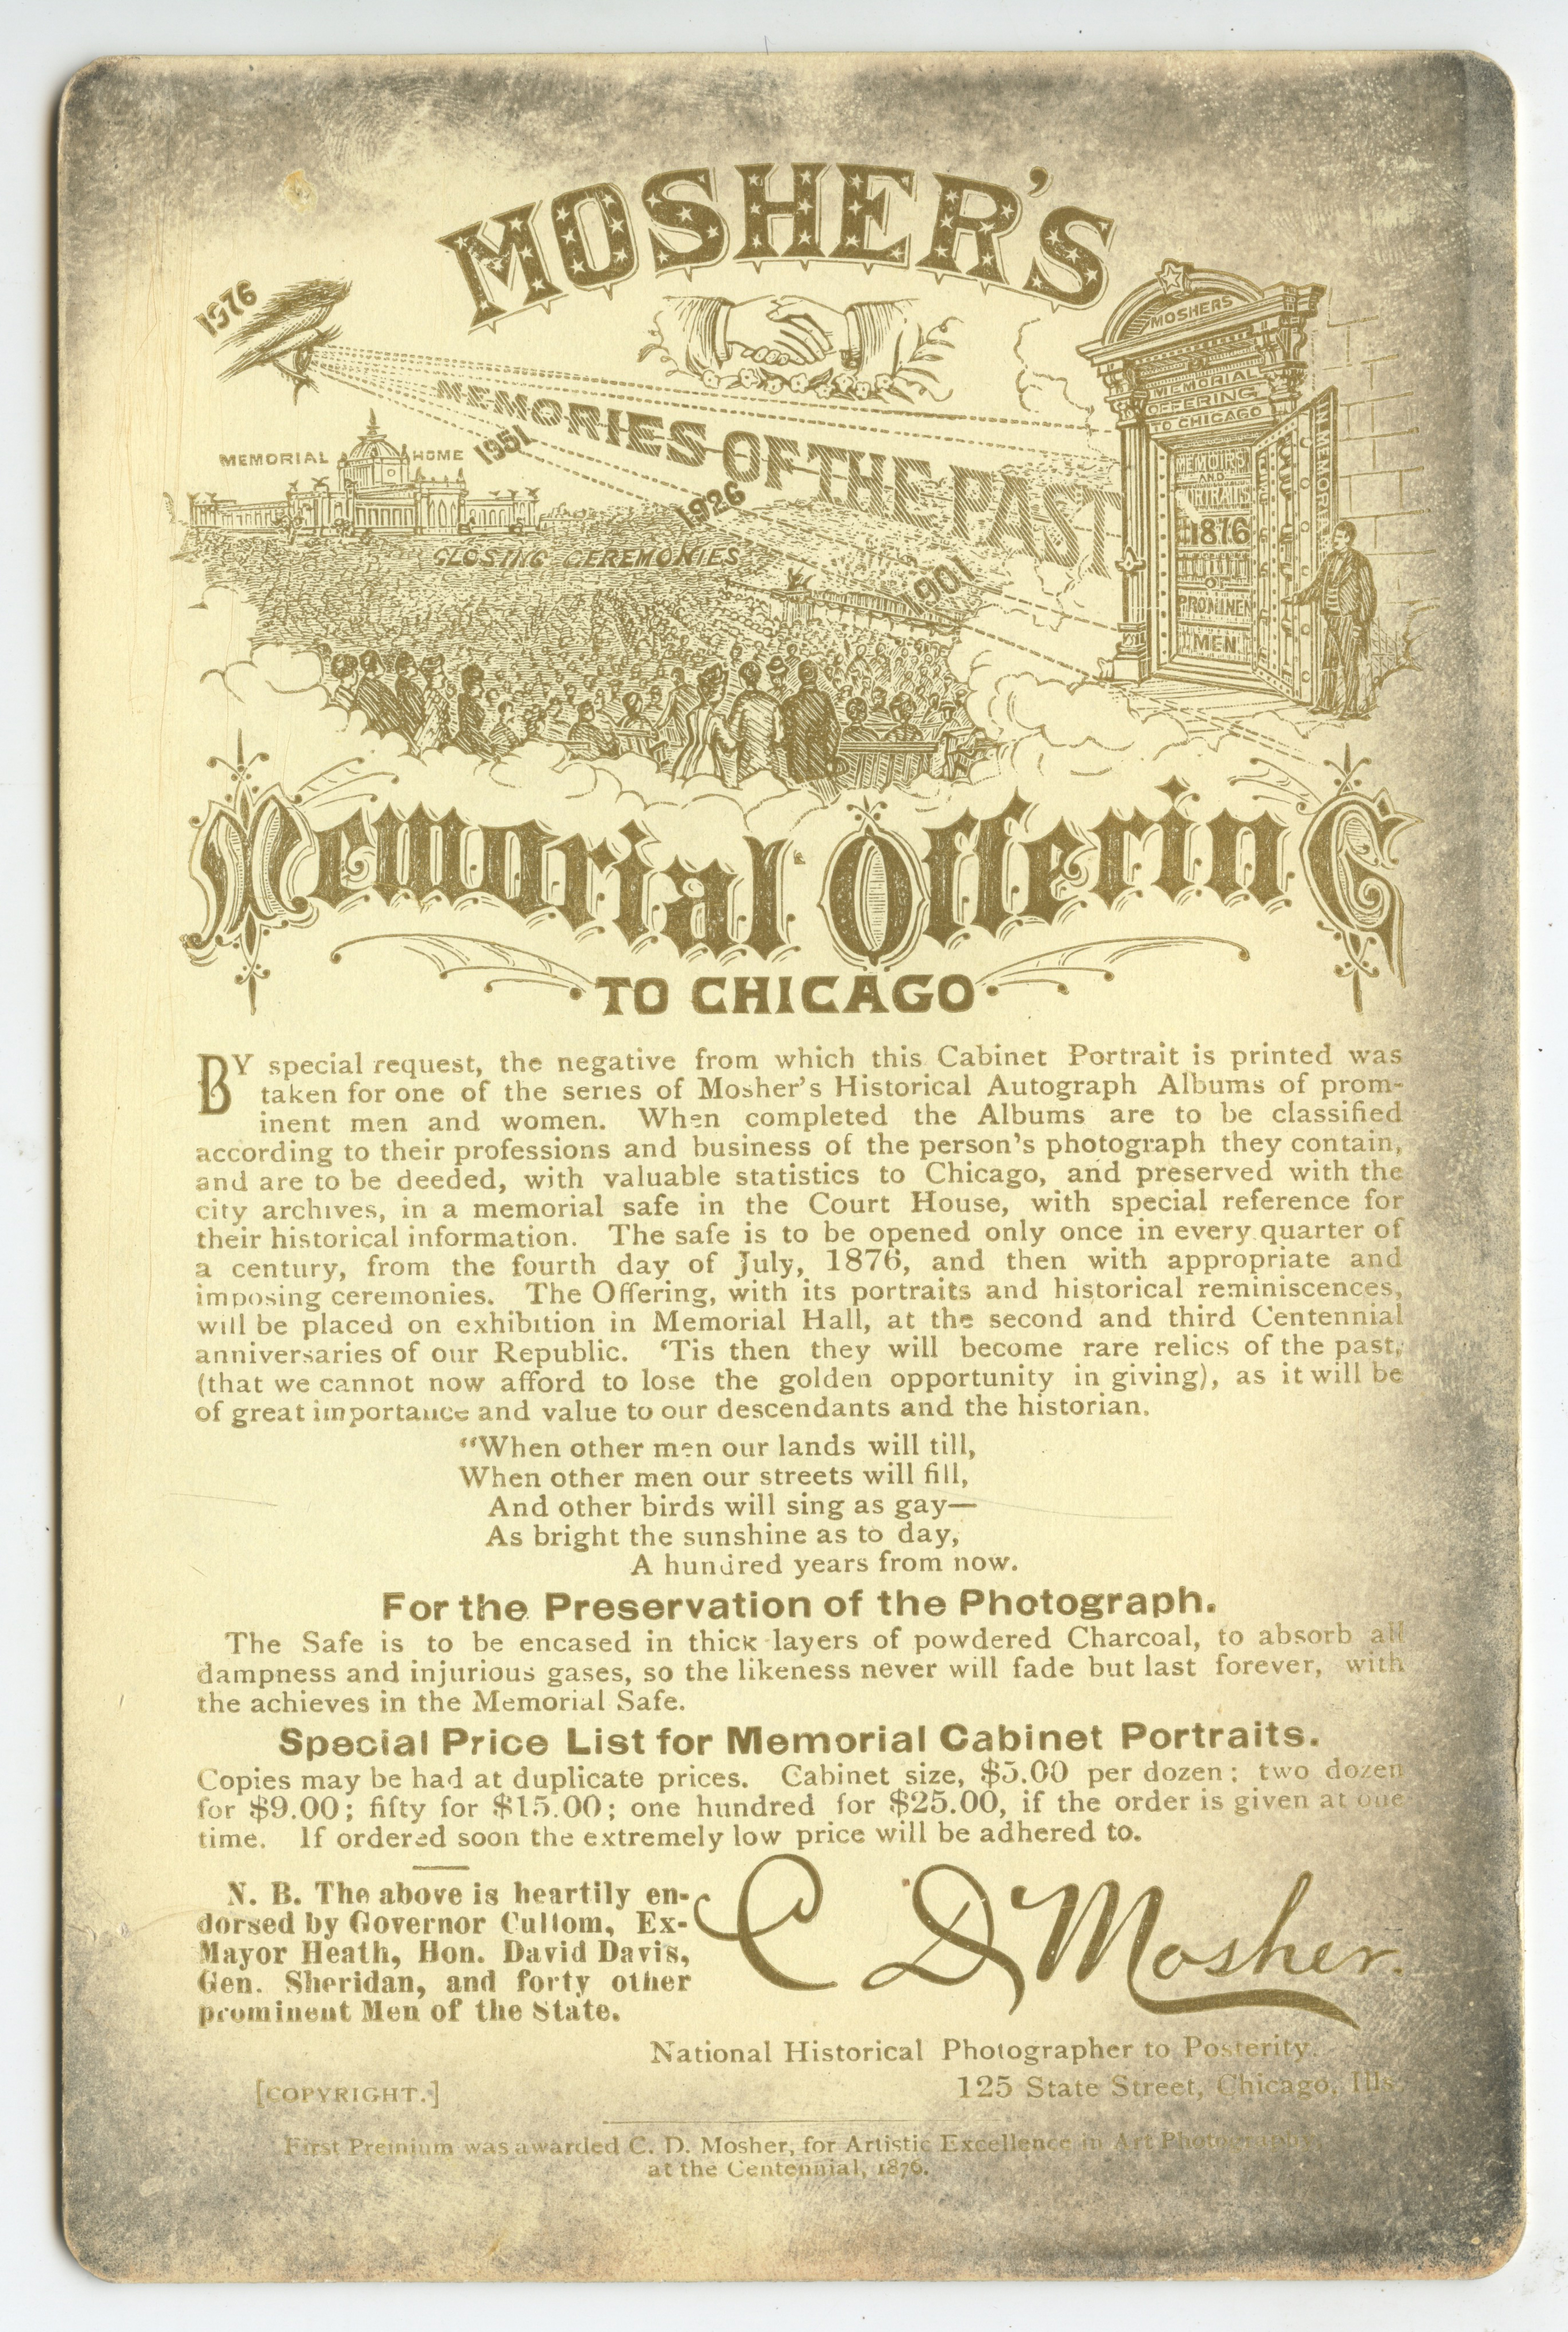 MOSHER'S
1976
MEMORIES OF THE PAST
1951
1926
1901
MEMORIAL HOME
CLOSING CEREMONIES
MOSHERS
MEMORIAL
OFFERING
TO CHICAGO
IN MEMORY
MEMOIRS
AND
1876
OF
PROMINEN
MEN
Memorial Offering
TO CHICAGO
BY special request, the negative from which this Cabinet Portrait is printed was
taken for one of the series of Mosher's Historical Autograph Albums of prom-
inent men and women. When completed the Albums are to be classified
according to their professions and business of the person's photograph they contain,
and are to be deeded, with valuable statistics to Chicago, and preserved with the
city archives, in a memorial safe in the Court House, with special reference for
their historical information. The safe is to be opened only once in every quarter of
a century, from the fourth day of July, 1876, and then with appropriate and
imposing ceremonies. The Offering, with its portraits and historical reminiscences,
will be placed on exhibition in Memorial Hall, at the second and third Centennial
anniversaries of our Republic. 'Tis then they will become rare relics of the past,
(that we cannot now afford to lose the golden opportunity in giving), as it will be
of great importance and value to our descendants and the historian.
"When other men our lands will till,
When other men our streets will fill,
And other birds will sing as gay—
As bright the sunshine as to day,
A hundred years from now.
For the Preservation of the Photograph.
The Safe is to be encased in thick layers of powdered Charcoal, to absorb all
dampness and injurious gases, so the likeness never will fade but last forever, with
the achieves in the Memorial Safe.
Special Price List for Memorial Cabinet Portraits.
Copies may be had at duplicate prices. Cabinet size, $5.00 per dozen; two dozen
for $9.00; fifty for $15.00; one hundred for $25.00, if the order is given at one
time. If ordered soon the extremely low price will be adhered to.
N. B. The above is heartily en-
dorsed by Governor Cullom, Ex-
Mayor Heath, Hon. David Davis,
Gen. Sheridan, and forty other
prominent Men of the State.
C D Mosher.
National Historical Photographer to Posterity.
125 State Street, Chicago, Ills.
[COPYRIGHT.]
First Premium was awarded C. D. Mosher, for Artistic Excellence in Art Photography,
at the Centennial, 1876.